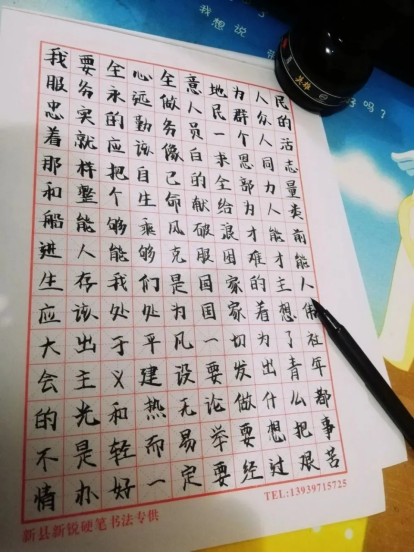 我想说
英雄
好吗?
我要全心全意地为人民
服务永远做人民群众的
忠实的勤务员一个人活
着就应该像白求恩同志
那样把自己的全部力量
和整个生命献给为人类
船能够乘风破浪才能前
进人能够克服困难才能
生存我们是国家的主人
应该处处为国家着想伟
大出于平凡一切为了社
会主义建设要发出青年
的光和热无论做什么都
不是轻而易举要想把事
情办好一定要经过艰苦
新县新锐硬笔书法专供
TEL:13939715725